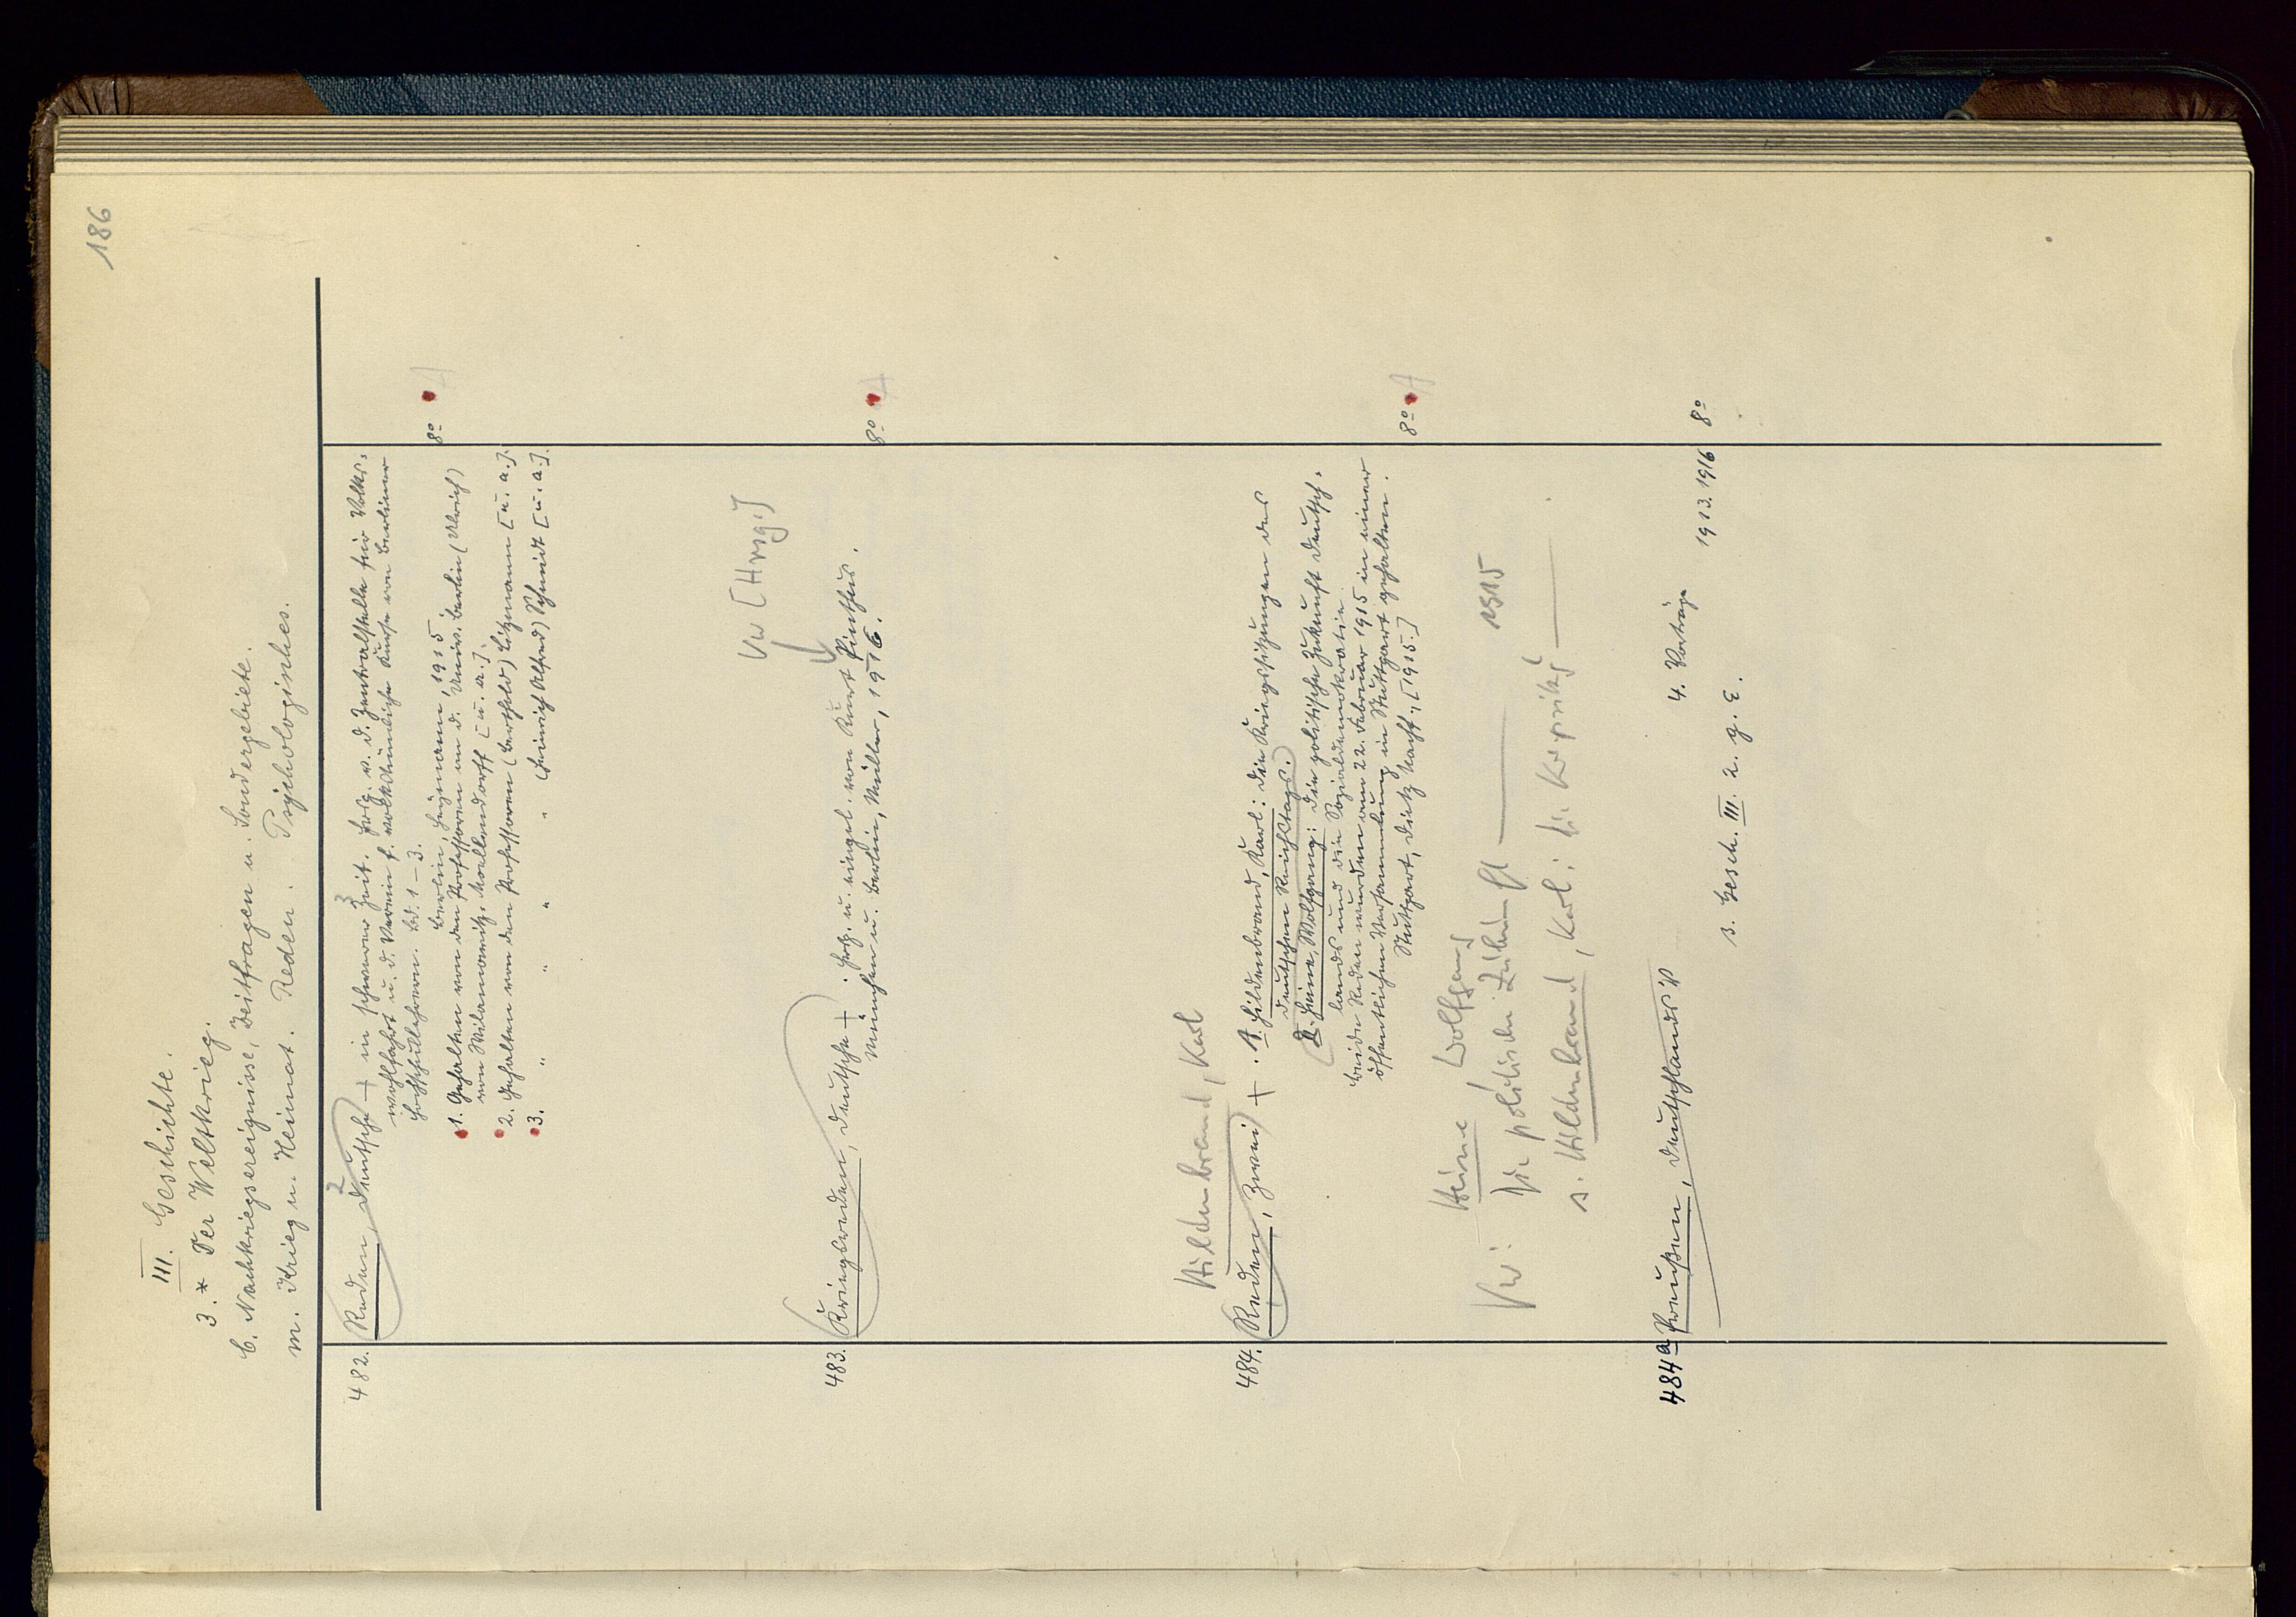 186
III. Geschichte.
3.* Der Weltkrieg.
C. Nachkriegsereignisse, Zeitfragen u. Sondergebiete.
m. Krieg u. Heimat. Reden. Psychologisches.
482. Reden, Deutsche + in schwerer Zeit. Hrsg. v. d. Zentralstelle für Volks-
wohlfahrt u. d. Verein f. volkstümliche Kurse von Berliner
Hochschullehrern. Bd. 1–3.
Berlin, Heymann, 1915 8°
1. Gehalten von den Professoren an d. Univ. Berlin (Ulrich)
von Wilamowitz-Moellendorff [u. a.].
2. Gehalten von den Professoren (Berthold) Litzmann [u. a.].
3. " " " " (Heinrich Alfred) Schmidt [u. a.].
Vw [Hrsg.]
483. Kriegsreden, Deutsche + Hrsg. u. eingel. von Kurt Pinthus.
München u. Berlin, Müller, 1916. 8°
Hildenbrand, Karl
484. Reden, Zwei + . 1. Hildenbrand, Karl: Die Kriegssitzungen des
deutschen Reichstags.
2. Heine, Wolfgang: Die politische Zukunft Deutsch-
lands und die Sozialdemokratie.
Beide Reden wurden am 22. Februar 1915 in einer
öffentlichen Versammlung in Stuttgart gehalten.
Stuttgart, Dietz Nachf., [1915.] 8°
Vw: Heine, Wolfgang
Die politische Zukunft — 1915
s. Hildenbrand, Karl: Die Kriegssitzg —
484a Preußen, Deutschlands
4. Vorträge
1913. 1916 8°
s. Gesch. III. 2. g. E.